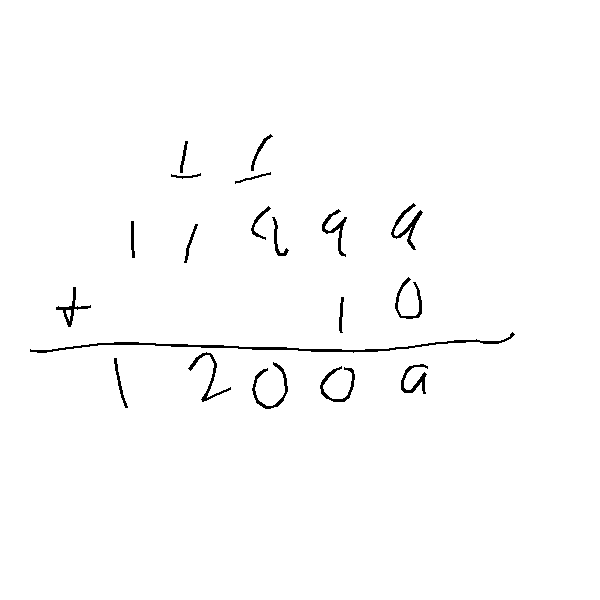 1 1
1 1 9 9 9
+ 1 0
1 2 0 0 9